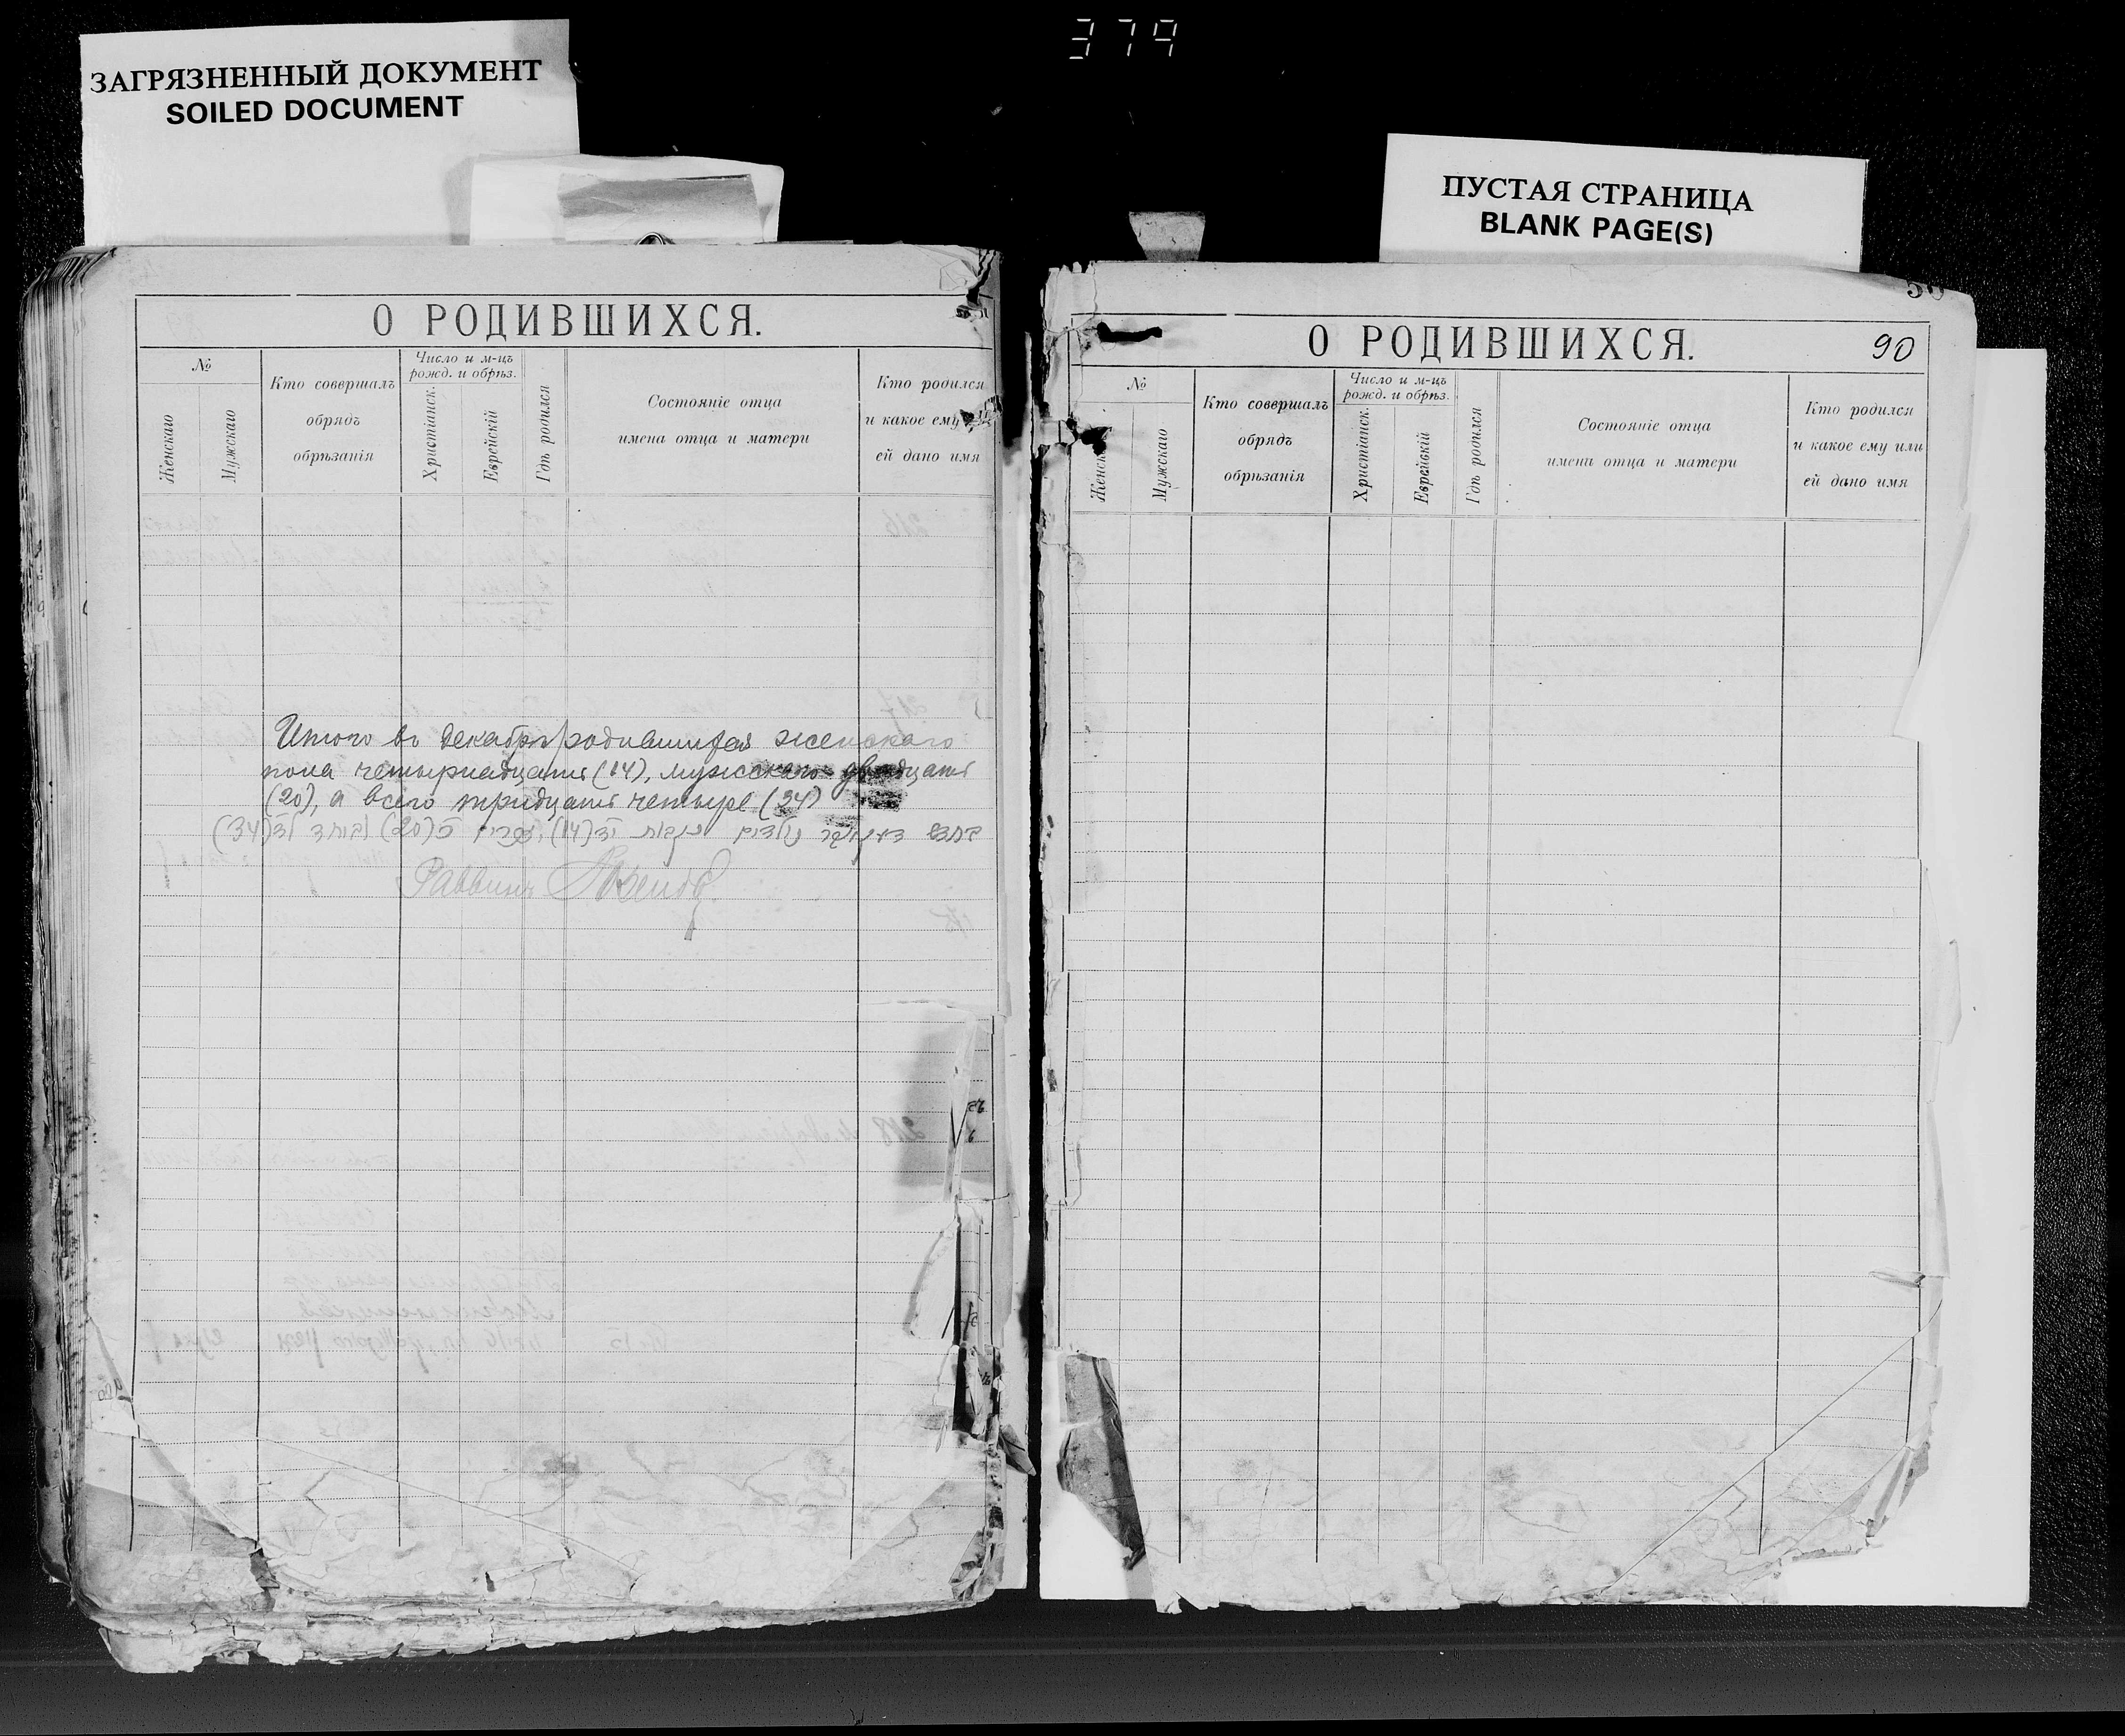 379
ЗАГРЯЗНЕННЫЙ ДОКУМЕНТ
SOILED DOCUMENT
ПУСТАЯ СТРАНИЦА
BLANK PAGE(S)
О РОДИВШИХСЯ.
№
Женскаго
Мужскаго
Кто совершалъ
обрядъ
обрѣзанія
Число и м-цъ
рожд. и обрѣз.
Христіанск.
Еврейскій
Гдѣ родился
Состояніе отца
имена отца и матери
Кто родился
и какое ему
ей дано имя
Итого въ декабрѣ родившихся женскаго
пола четырнадцать (14), мужскаго двадцать
(20), а всего тридцать четыре (34)
בחדש דעקאבר נולדים נקבות יד (14), זכרים כ (20) וביחד לד (34)
Раввинъ
О РОДИВШИХСЯ.
90
№
Женск
Мужскаго
Кто совершалъ
обрядъ
обрѣзанія
Число и м-цъ
рожд. и обрѣз.
Христіанск.
Еврейскій
Гдѣ родился
Состояніе отца
имена отца и матери
Кто родился
и какое ему или
ей дано имя